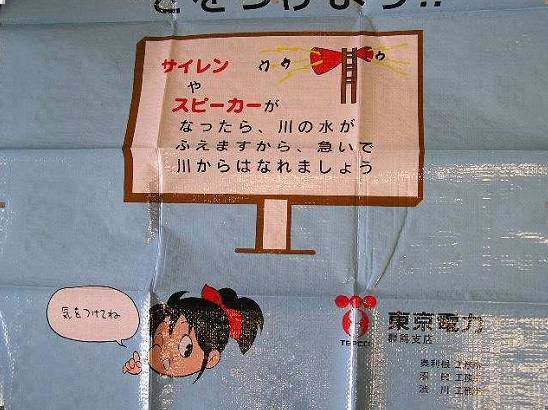 をつけよう!!
サイレン
や
スピーカーが
なったら、川の水が
ふえますから、急いで
川からはなれましょう
気をつけてね
TEPCO
東京電力
群馬支店
奥利根工務所
渋川工務所